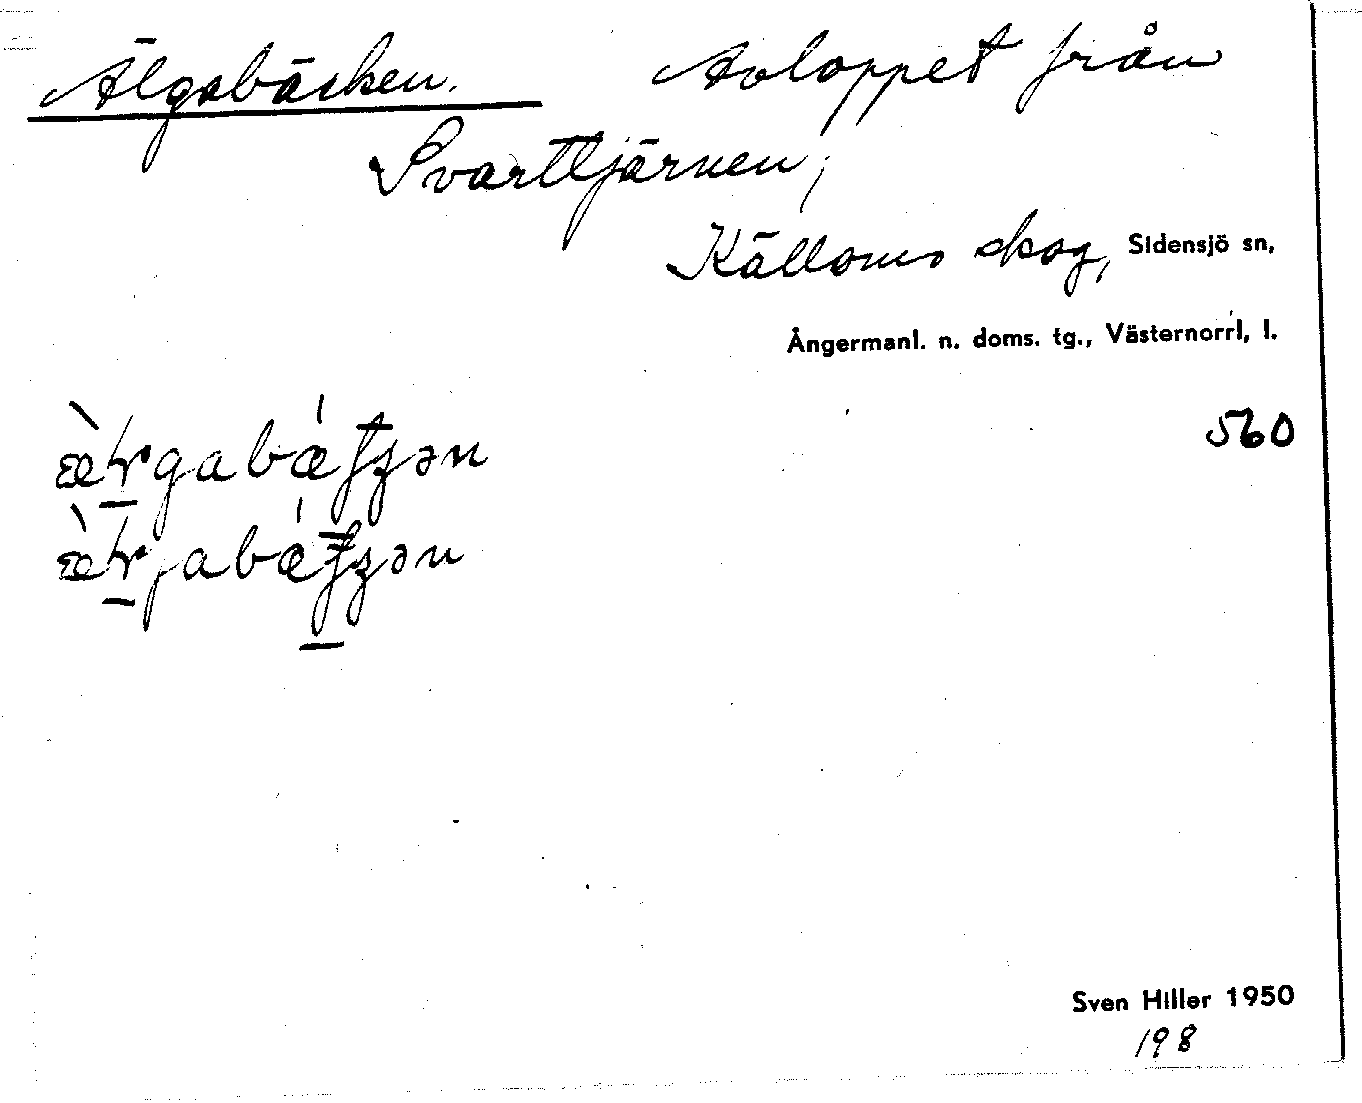 Älgabäcken. Avloppet från
Svarttjärnen,
Källoms skog, Sidensjö sn,
Ångermanl. n. doms. tg., Västernorrl, l.
560
Sven Hiller 1950
198